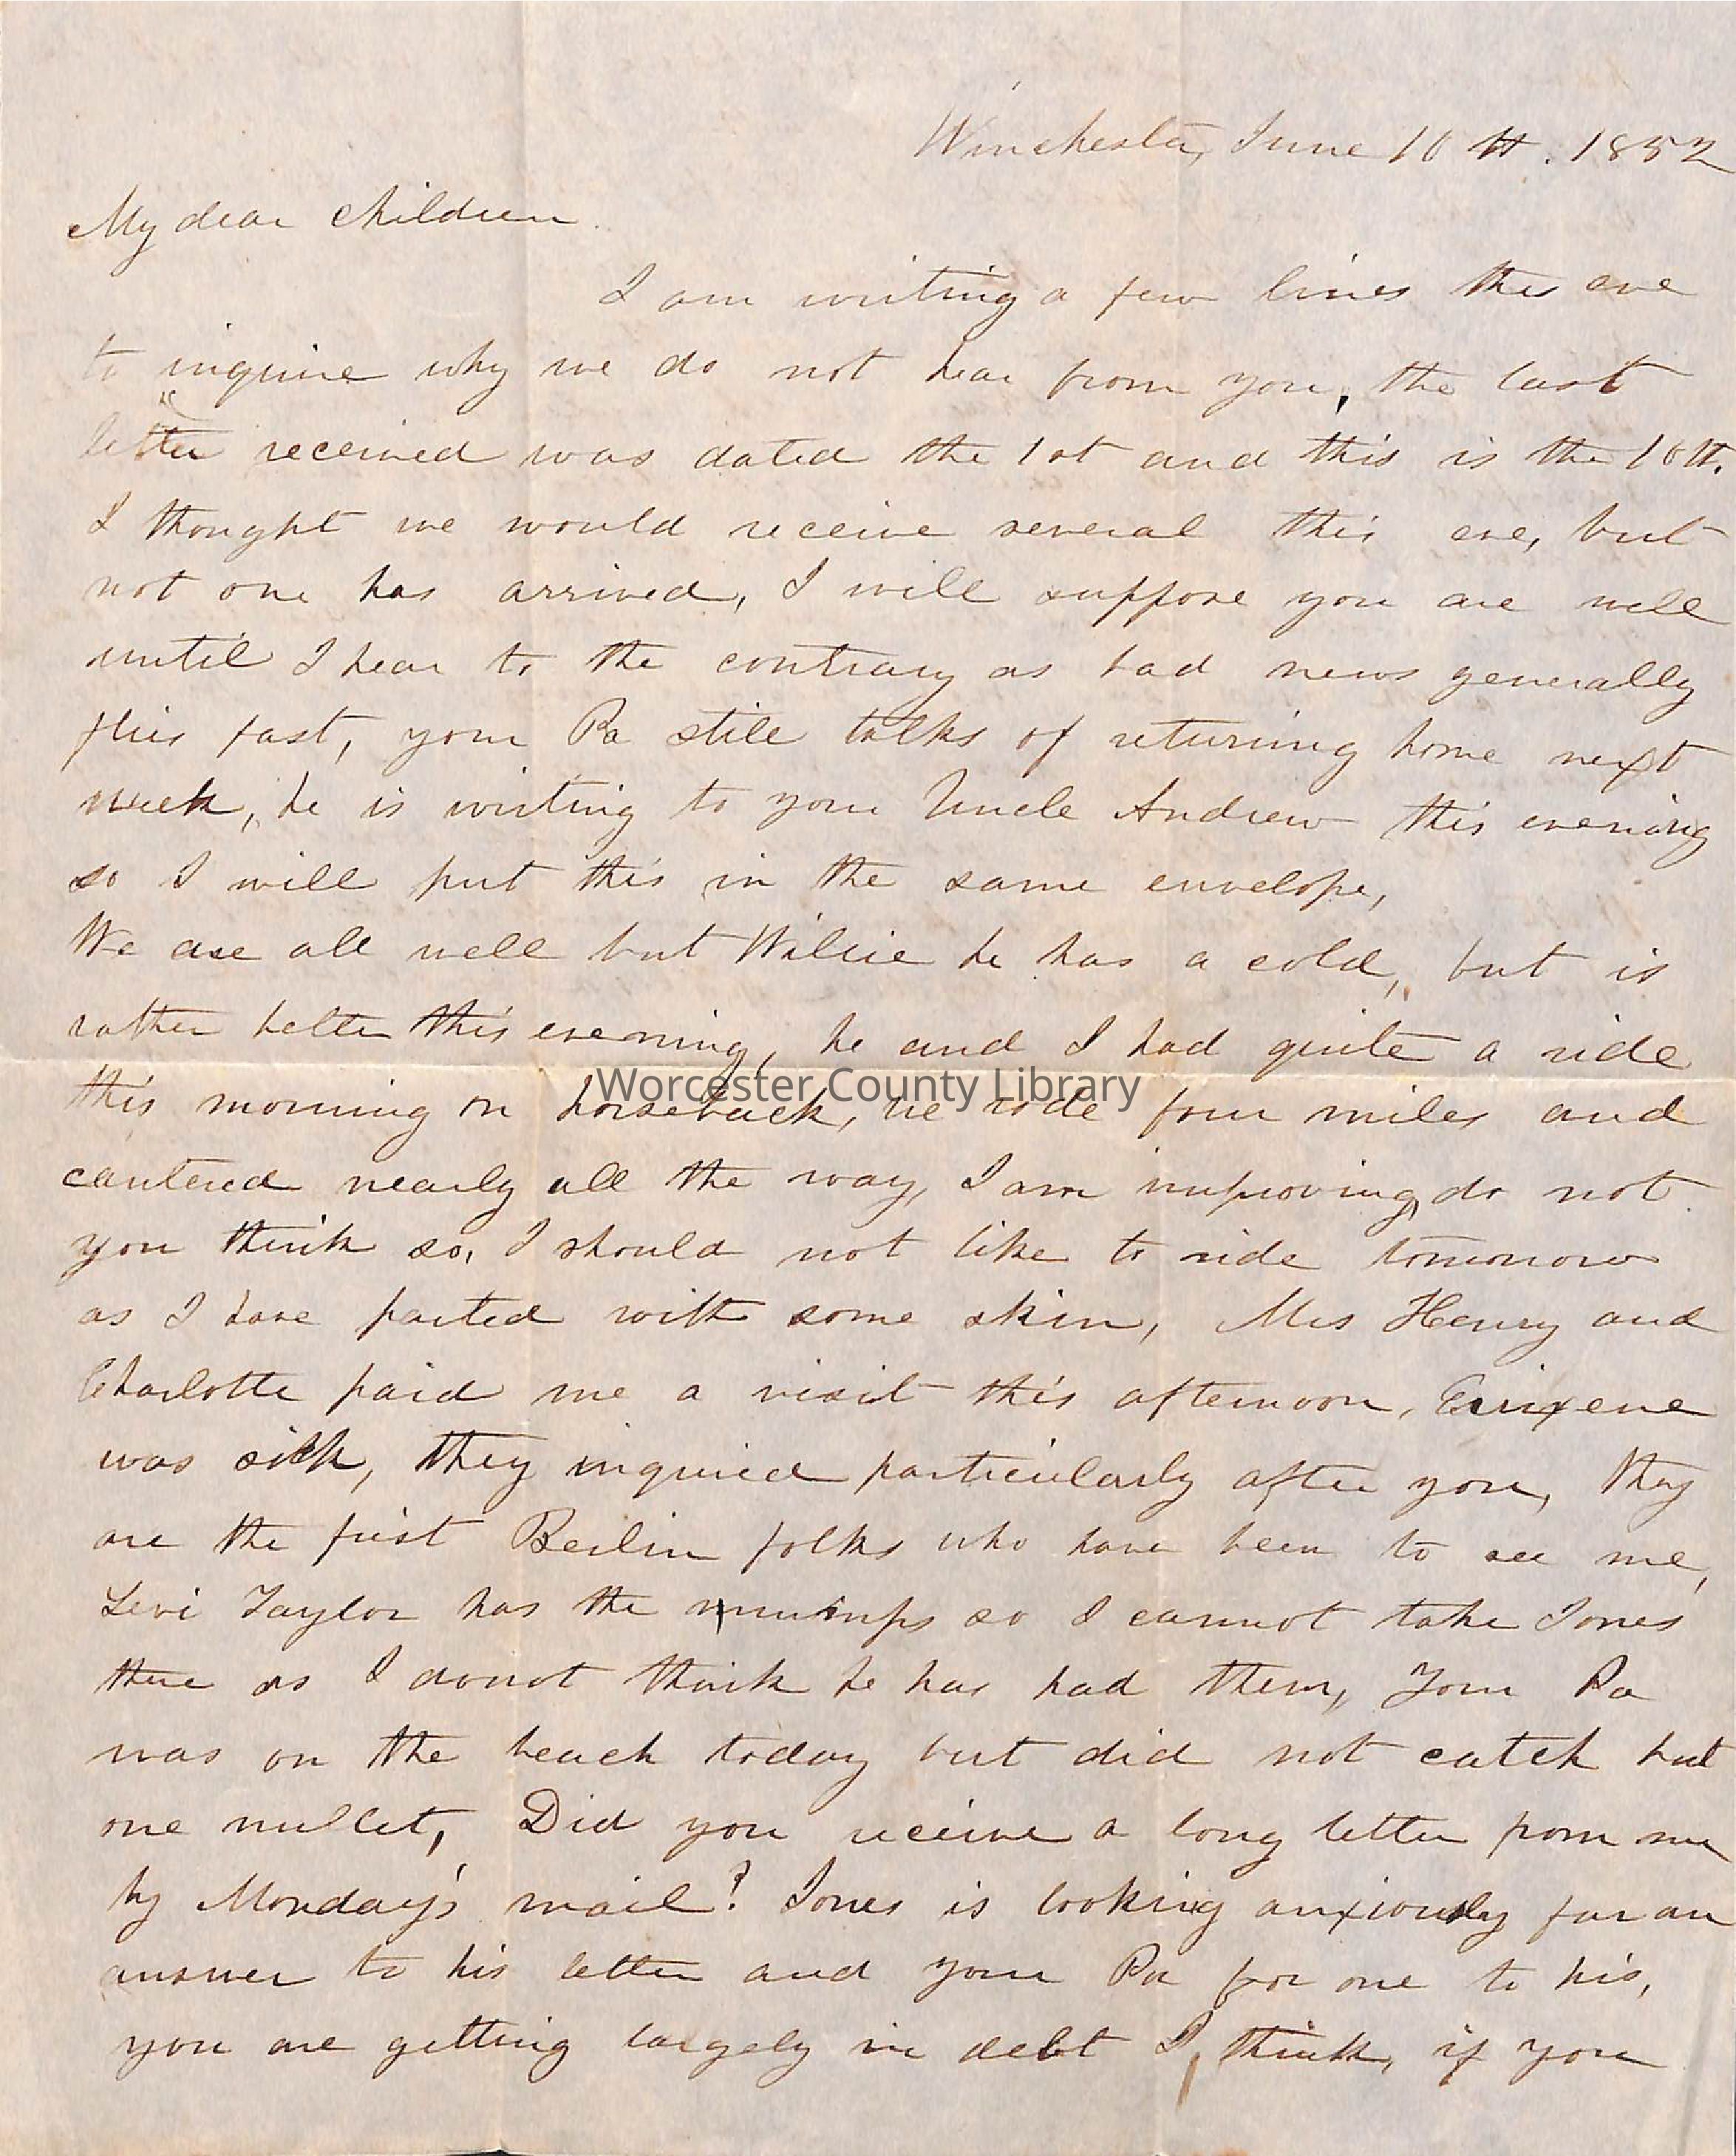 Winchester, June 10th. 1852
My dear children.
I am writing a few lines this eve
to inquire why we do not hear from you, the last
letter received was dated the 1st and this is the 10th.
I thought we would receive several this eve, but
not one has arrived, I will suppose you are well
until I hear to the contrary as bad news generally
flies fast, your Pa still talks of returning home next
week, he is writing to your Uncle Andrew this evening
so I will put this in the same envelope,
We are all well but Willie he has a cold, but is
rather better this evening, he and I had quite a ride
this morning on horseback, we rode four miles and
Worcester County Library
cantered nearly all the way, I am improving, do not
you think so, I should not like to ride tomorrow
as I have parted with some skin, Mrs Henry and
Charlotte paid me a visit this afternoon,
was sick, they inquired particularly after you, they
are the first Berlin folks who have been to see me,
Levi Taylor has the mumps so I cannot take Jones
there as I donot think he has had them, Your Pa
was on the beach today but did not catch but
one mullet, Did you receive a long letter from me
by Monday's mail? Jones is looking anxiously for an
answer to his letter and your Pa for one to his,
you are getting largely in debt I think, if you